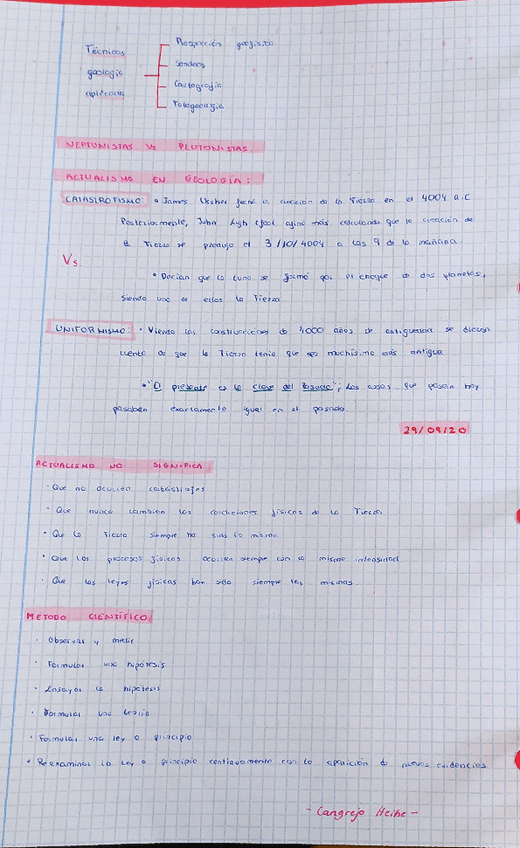 Técnicas
geología
Prospección geofísica
Sondeos
Cartografía
NEPTUNISTAS Vs PLUTONISTAS.
ACTUALISMO EN GEOLOGIA:
CATASTROFISMO: • James Usher fechó la creación de la Tierra en el 4004 a.C
Posteriormente, John afinó más calculando que la creación de
la Tierra se produjo el 3/10/4004 a las 9 de la mañana.
Vs.
• Decían que la Luna se formó por el choque de dos planetas,
siendo uno de ellos la Tierra
UNIFORMISMO: • Viendo las construcciones de 4000 años de antigüedad se dieron
cuenta de que la Tierra tenía que ser muchísimo más antigua
• "El presente es la clave del pasado"; las cosas que pasan hoy
pasaban exactamente igual en el pasado.
29/09/20
ACTUALISMO NO SIGNIFICA:
· Que no ocurren catástrofes
· Que nunca cambien las condiciones físicas de la Tierra
· Que la Tierra siempre ha sido la misma
· Que los procesos físicos ocurren siempre con la misma intensidad
· Que las leyes físicas han sido siempre las mismas.
METODO CIENTÍFICO:
· Observar y medir
· Formular una hipótesis
· Ensayar la hipótesis
· Formular una teoría
· Formular una ley o principio
· Reexaminar la Ley o principio continuamente con la aparición de nuevas evidencias
- Cangrejo Heike -